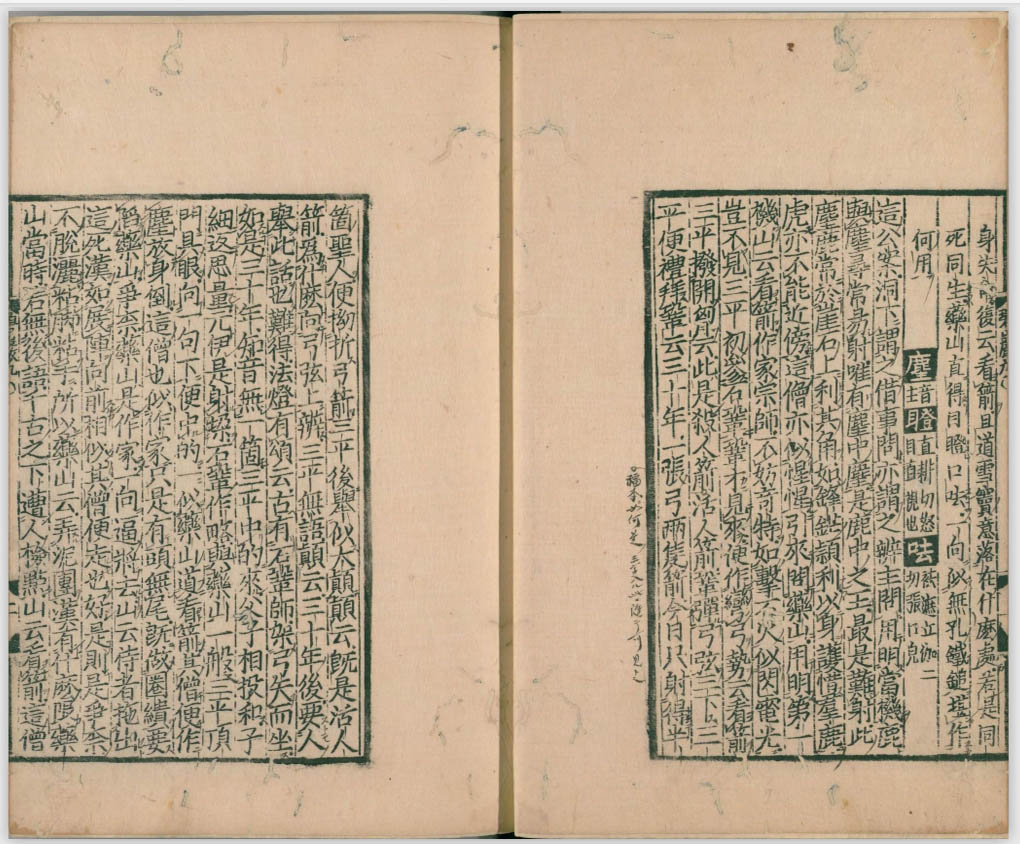 身失命復云看箭且道雪竇意落在什麽處若是同
死同生藥山直得目瞪口呿一向似無孔鐵鎚堪作
何用 麈音主 瞪直耕切怒目直視也 呿丘伽二切張口皃
這公案洞下謂之借事問亦謂之辨主問用明當機鹿
與麈尋常易射唯有麈中麈是鹿中之王最是難射此
麈鹿常於崖石上利其角如鋒鋩頴利以身護惜羣鹿
虎亦不能近傍這僧亦似惺惺引來問藥山用明第一
機山云看箭作家宗師不妨奇特如擊石火似閃電光
豈不見三平初參石鞏鞏才見來便作彎弓勢云看箭
三平撥開胷云此是殺人箭活人箭鞏彈弓弦三下三
平便禮拜鞏云三十年一張弓兩隻箭今日只射得半
箇聖人便拗折弓箭三平後舉似大顛顛云既是活人
箭爲什麽向弓弦上辨三平無語顛云三十年後要人
舉此話也難得法燈有頌云古有石鞏師架弓矢而坐
如是三十年知音無一箇三平中的來父子相投和子
細返思量元伊是射垛石鞏作略與藥山一般三平頂
門具眼向一句下便中的一似藥山道看箭其僧便作
麈放身倒這僧也似作家只是有頭無尾旣做圈繢要
陷藥山爭奈藥山是作家一向逼將去山云侍者拖出
這死漢如展陣向前相似其僧便走也好是則是爭奈
不脫灑粘脚粘手所以藥山云弄泥團漢有什麽限藥
山當時若無後語千古之下遭人檢點山云看箭這僧